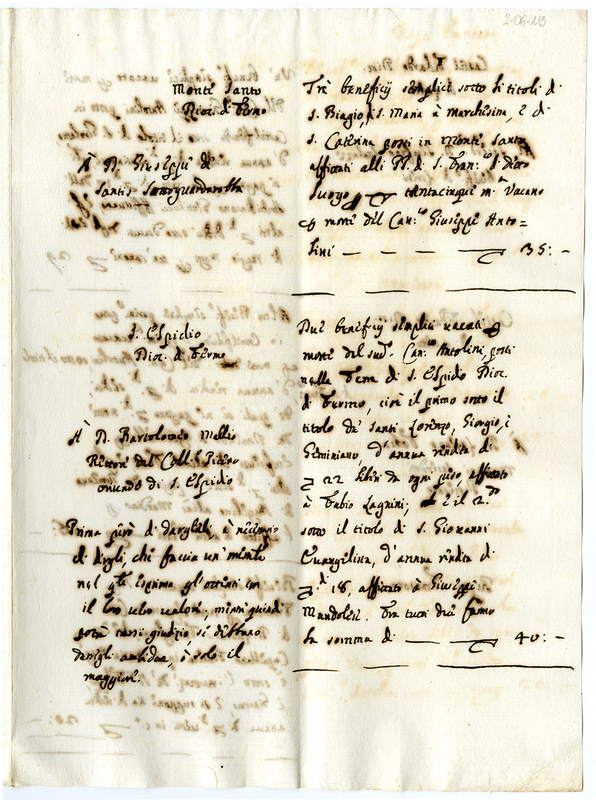 2-06-113
Monte Santo
Dioc. di Fermo
À D. Giuseppe de
Santis Sottoguardarobba
Trè beneficij semplici sotto li titoli di
S. Biagio, di S. Maria à Marchesina, e di
S. Caterina posti in Monte Santo
affittati alli PP. di S. Fran.co di detto
Luogo trentacinque m.ta Vacano
morte del Can.co Giuseppe Anto=
lini — — — 35: -
S. Elpidio
Dioc. di Fermo
À D. Bartolomeo Mallio
Rettore del Coll.o Picen
omundo di S. Elpidio
Prima però di darglieli, è necessario
di dirgli, che faccia un
nel qle esprima gl'ottenti con
il loro vero valore; mentre quindi
potrà farsi giudizio se si debbano
dargli ambidue, ò solo il
maggiore.
Due beneficij semplici vacati
morte del sud.o Can.co Antolini, posti
nella Terra di S. Elpidio Dioc.
di Fermo, cioè il primo sotto il
titolo de' Santi Lorenzo, Giorgio, e
Geminiano, d'annua rendita di
22 liberi da ogni peso, affittato
à Fabio Lagnini; e il 2.do
sotto il titolo di S. Giovanni
Evangelista, d'annua rendita di
18, affittato à Giuseppe
Mandolesi. Fra tutti due fanno
la somma di — — 40: -